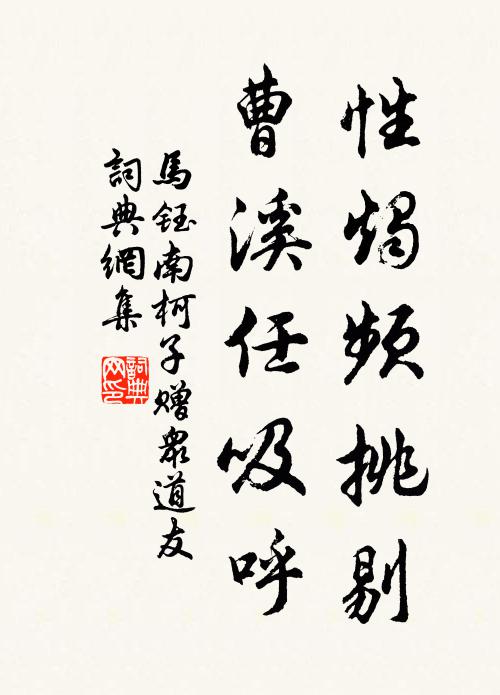 性燭頻挑剔
曹溪任吸呼
馬鈺南柯子赠眾道友
詞典網集
詞典
网印